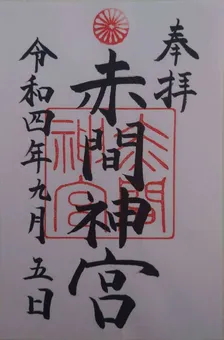 奉拝
赤間神宮
赤間
神宮
令和四年九月五日